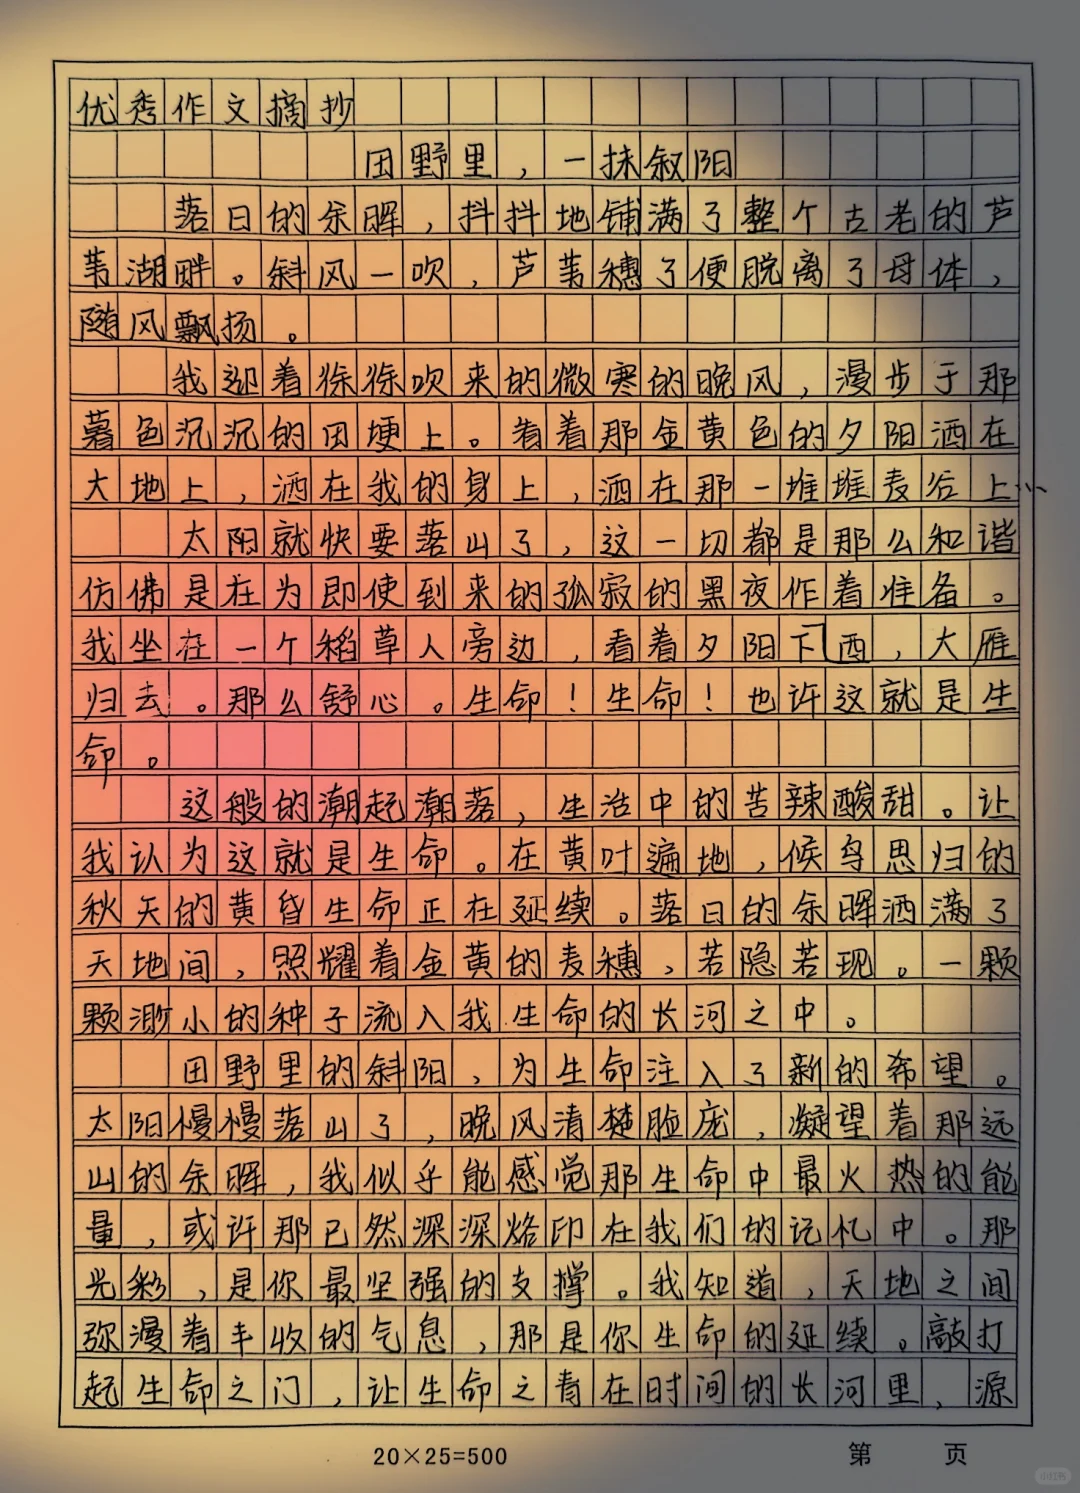 优秀作文摘抄
田野里，一抹叙阳
落日的余晖，抖抖地铺满了整个古老的芦
苇湖畔。斜风一吹，芦苇穗了便脱离了母体，
随风飘扬。
我迎着徐徐吹来的微寒的晚风，漫步于那
暮色沉沉的田埂上。看着那金黄色的夕阳洒在
大地上，洒在我的身上，洒在那一堆堆麦谷上…
太阳就快要落山了，这一切都是那么和谐
仿佛是在为即使到来的孤寂的黑夜作着准备。
我坐在一个稻草人旁边，看着夕阳下西，大雁
归去。那么舒心。生命！生命！也许这就是生
命。
这般的潮起潮落，生活中的苦辣酸甜。让
我认为这就是生命。在黄叶遍地，候鸟思归的
秋天的黄昏生命正在延续。落日的余晖洒满了
天地间，照耀着金黄的麦穗，若隐若现。一颗
颗渺小的种子流入我生命的长河之中。
田野里的斜阳，为生命注入了新的希望。
太阳慢慢落山了，晚风清楚脸庞，凝望着那远
山的余晖，我似乎能感觉那生命中最火热的能
量，或许那已然深深烙印在我们的记忆中。那
光彩，是你最坚强的支撑。我知道，天地之间
弥漫着丰收的气息，那是你生命的延续。敲打
起生命之门，让生命之青在时间的长河里，源
20×25=500
第 页
小红书